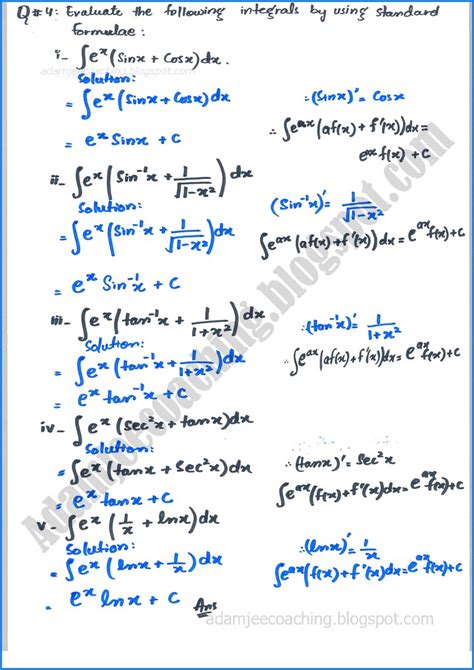 Q#4: Evaluate the following integrals by using standard
formulae:
i- ∫eˣ(Sinx + Cosx)dx.
adamjeecoaching.blogspot.com
Solution:
= ∫eˣ(Sinx + Cosx)dx ∵(Sinx)' = Cosx
= eˣ Sinx + C ∴ ∫eᵃˣ(af(x) + f'(x))dx =
eˣ f(x) + C
ii- ∫eˣ(Sin⁻¹x + 1/√(1-x²))dx
Solution: (Sin⁻¹x)' = 1/√(1-x²)
= ∫eˣ(Sin⁻¹x + 1/√(1-x²))dx ∫eᵃˣ(af(x) + f'(x))dx = eᵃˣf(x) + C
= eˣ Sin⁻¹x + C
iii- ∫eˣ(tan⁻¹x + 1/(1+x²))dx ∵(tan⁻¹x)' = 1/(1+x²)
Solution:
= ∫eˣ(tan⁻¹x + 1/(1+x²))dx ∴ ∫eᵃˣ(af(x) + f'(x))dx = eᵃˣf(x) + C
= eˣ tan⁻¹x + C
iv- ∫eˣ(Sec²x + tanx)dx
Solution:
= ∫eˣ(tanx + Sec²x)dx ∵(tanx)' = Sec²x
= eˣ tanx + C ∫eᵃˣ(f(x) + f'(x)dx = eᵃˣf(x) + C
v- ∫eˣ(1/x + lnx)dx
Solution: ∵(lnx)' = 1/x
= ∫eˣ(lnx + 1/x)dx ∫eᵃˣ(f(x) + f'(x)dx = eᵃˣf(x) + C
= eˣ lnx + C Ans
adamjeecoaching.blogspot.com
Adamjeecoaching.blogspot.com